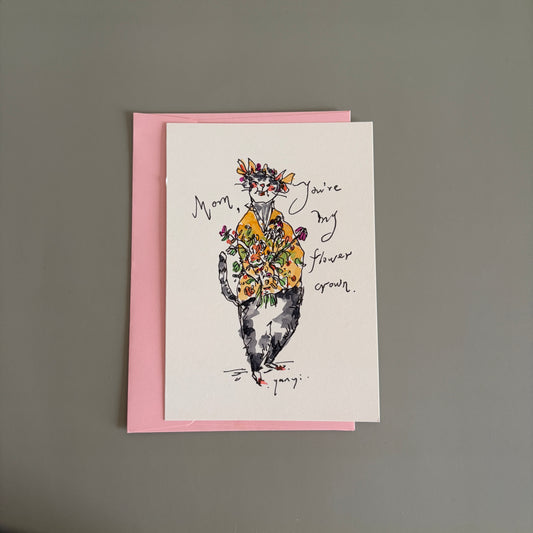 Mom, you're
my
flower
crown.
yanyi.